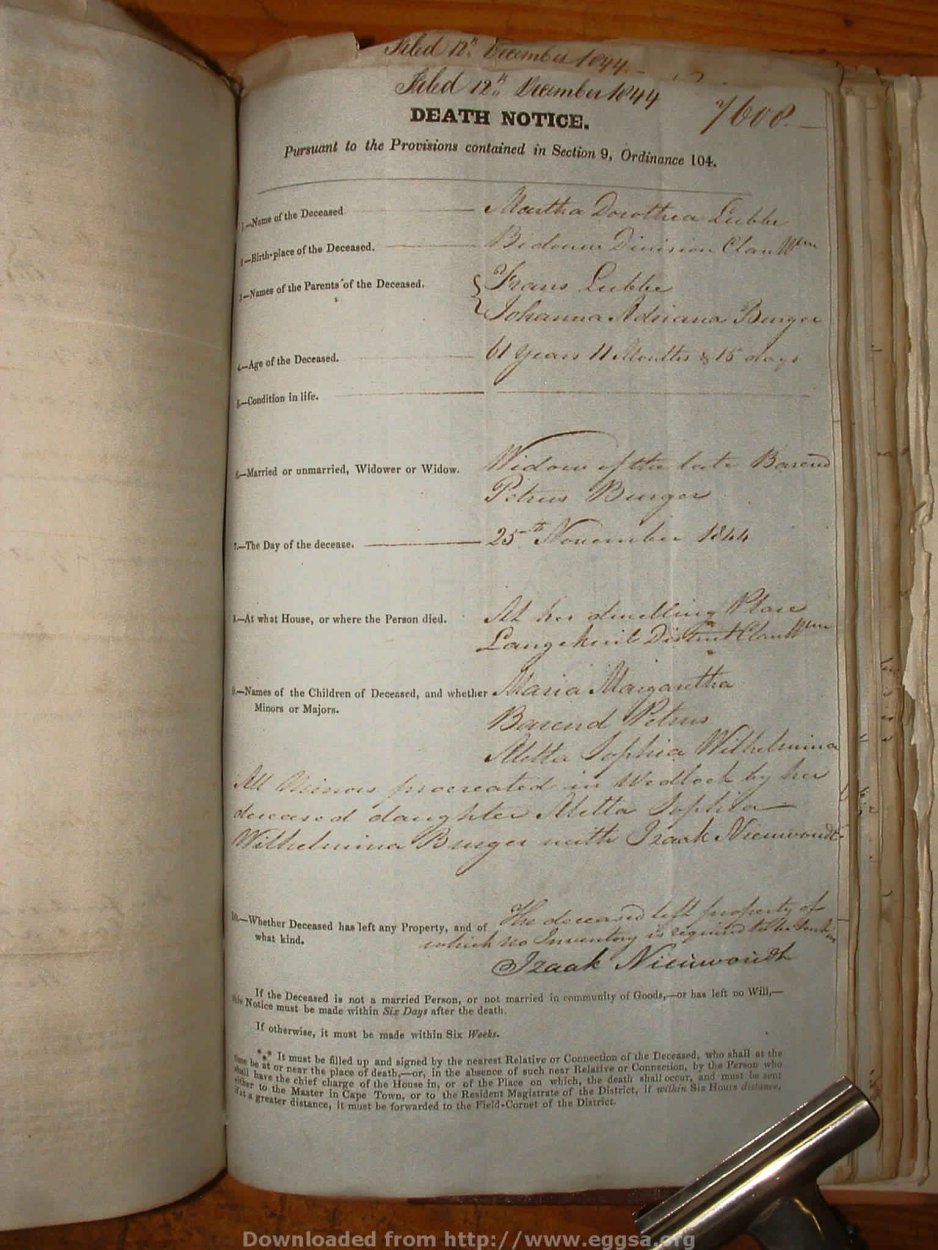 Filed 12th December 1844
Filed 12th December 1844
7608.
DEATH NOTICE.
Pursuant to the Provisions contained in Section 9, Ordinance 104.
1—Name of the Deceased Martha Dorothea Lubbe
2—Birth-place of the Deceased. Division Clan Wm
3—Names of the Parents of the Deceased. Frans Lubbe
Johanna Adriana Burger
4—Age of the Deceased. 61 Years 11 Months & 15 days
5—Condition in life.
6—Married or unmarried, Widower or Widow. Widow of the late Barend
Petrus Burger
7—The Day of the decease. 25th November 1844
8—At what House, or where the Person died. At her dwelling Place
Langekuil District Clan Wm
9—Names of the Children of Deceased, and whether Maria Margaretha
Minors or Majors.
Barend Petrus
Aletta Sophia Wilhelmina
All Minors procreated in Wedlock by her
deceased daughter Aletta Sophia
Wilhelmina Burger with Izaak Nieuwoudt
10.—Whether Deceased has left any Property, and of The deceased left property of
what kind. which no Inventory is required to be
Izaak Nieuwoudt
If the Deceased is not a married Person, or not married in community of Goods,—or has left no Will,—
this Notice must be made within Six Days after the death.
If otherwise, it must be made within Six Weeks.
*** It must be filled up and signed by the nearest Relative or Connection of the Deceased, who shall at the
time be at or near the place of death,—or, in the absence of such near Relative or Connection, by the Person who
shall have the chief charge of the House in, or of the Place on which, the death shall occur, and must be sent
either to the Master in Cape Town, or to the Resident Magistrate of the District, if within Six Hours distance,
if at a greater distance, it must be forwarded to the Field-Cornet of the District.
Downloaded from http://www.eggsa.org